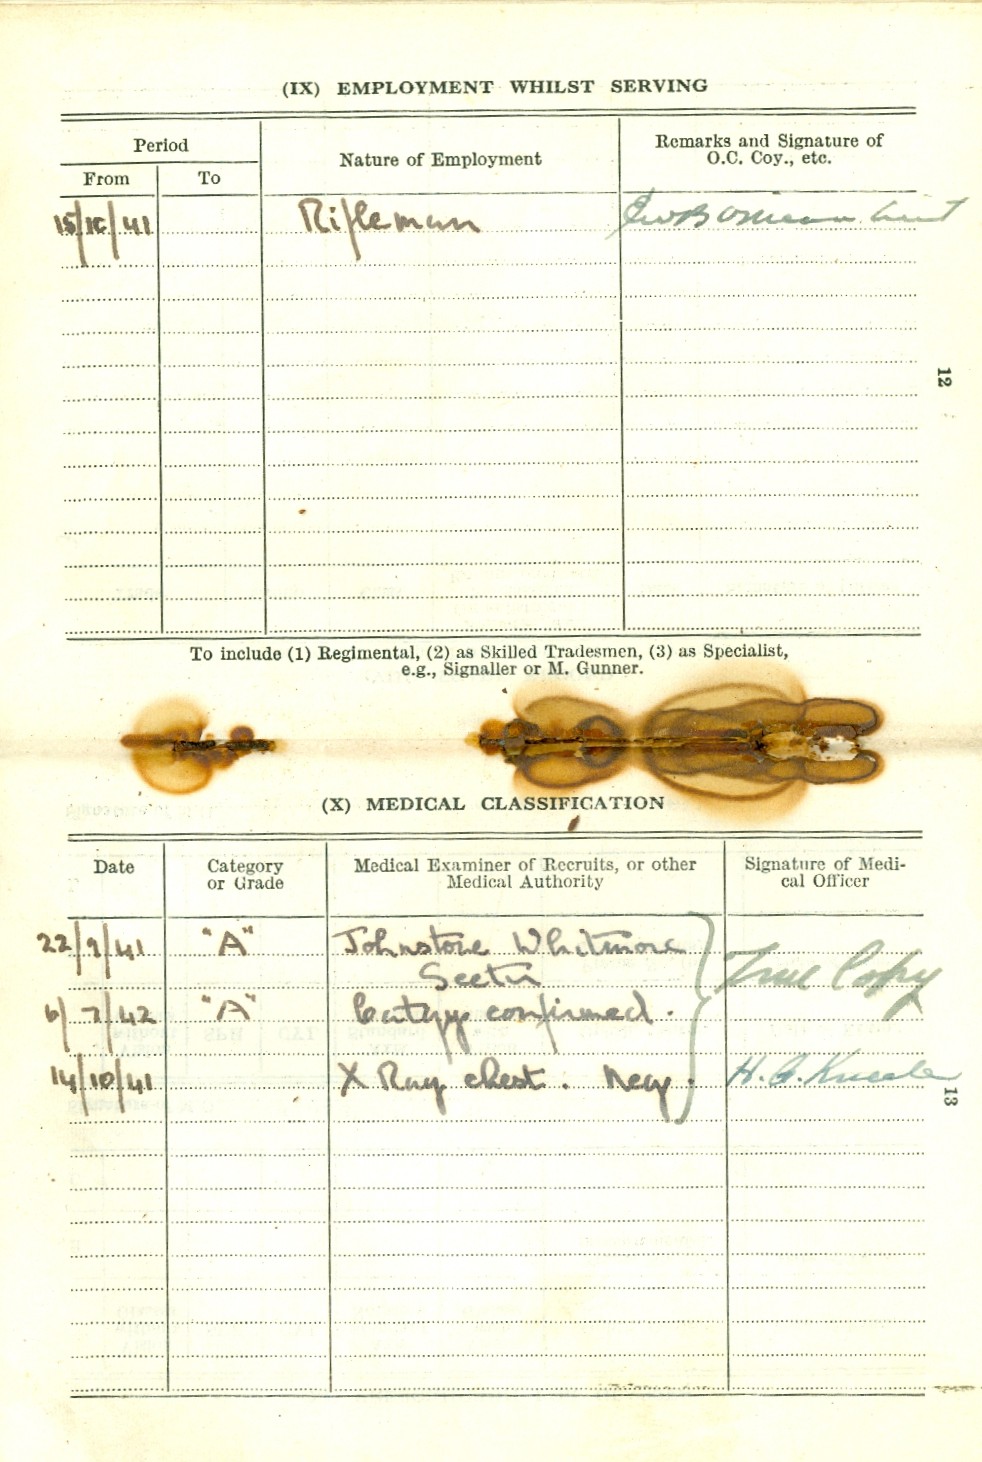 (IX) EMPLOYMENT WHILST SERVING
Period
Nature of Employment
Remarks and Signature of
O.C. Coy., etc.
From To
15/10/41 Rifleman
12
To include (1) Regimental, (2) as Skilled Tradesmen, (3) as Specialist,
e.g., Signaller or M. Gunner.
(X) MEDICAL CLASSIFICATION
Date
Category
or Grade
Medical Examiner of Recruits, or other
Medical Authority
Signature of Medi-
cal Officer
22/9/41 "A" Johnstone Whitmore
True Copy
6/7/42 "A" confirmed.
14/10/41 X Ray chest. Neg. H. G.
13